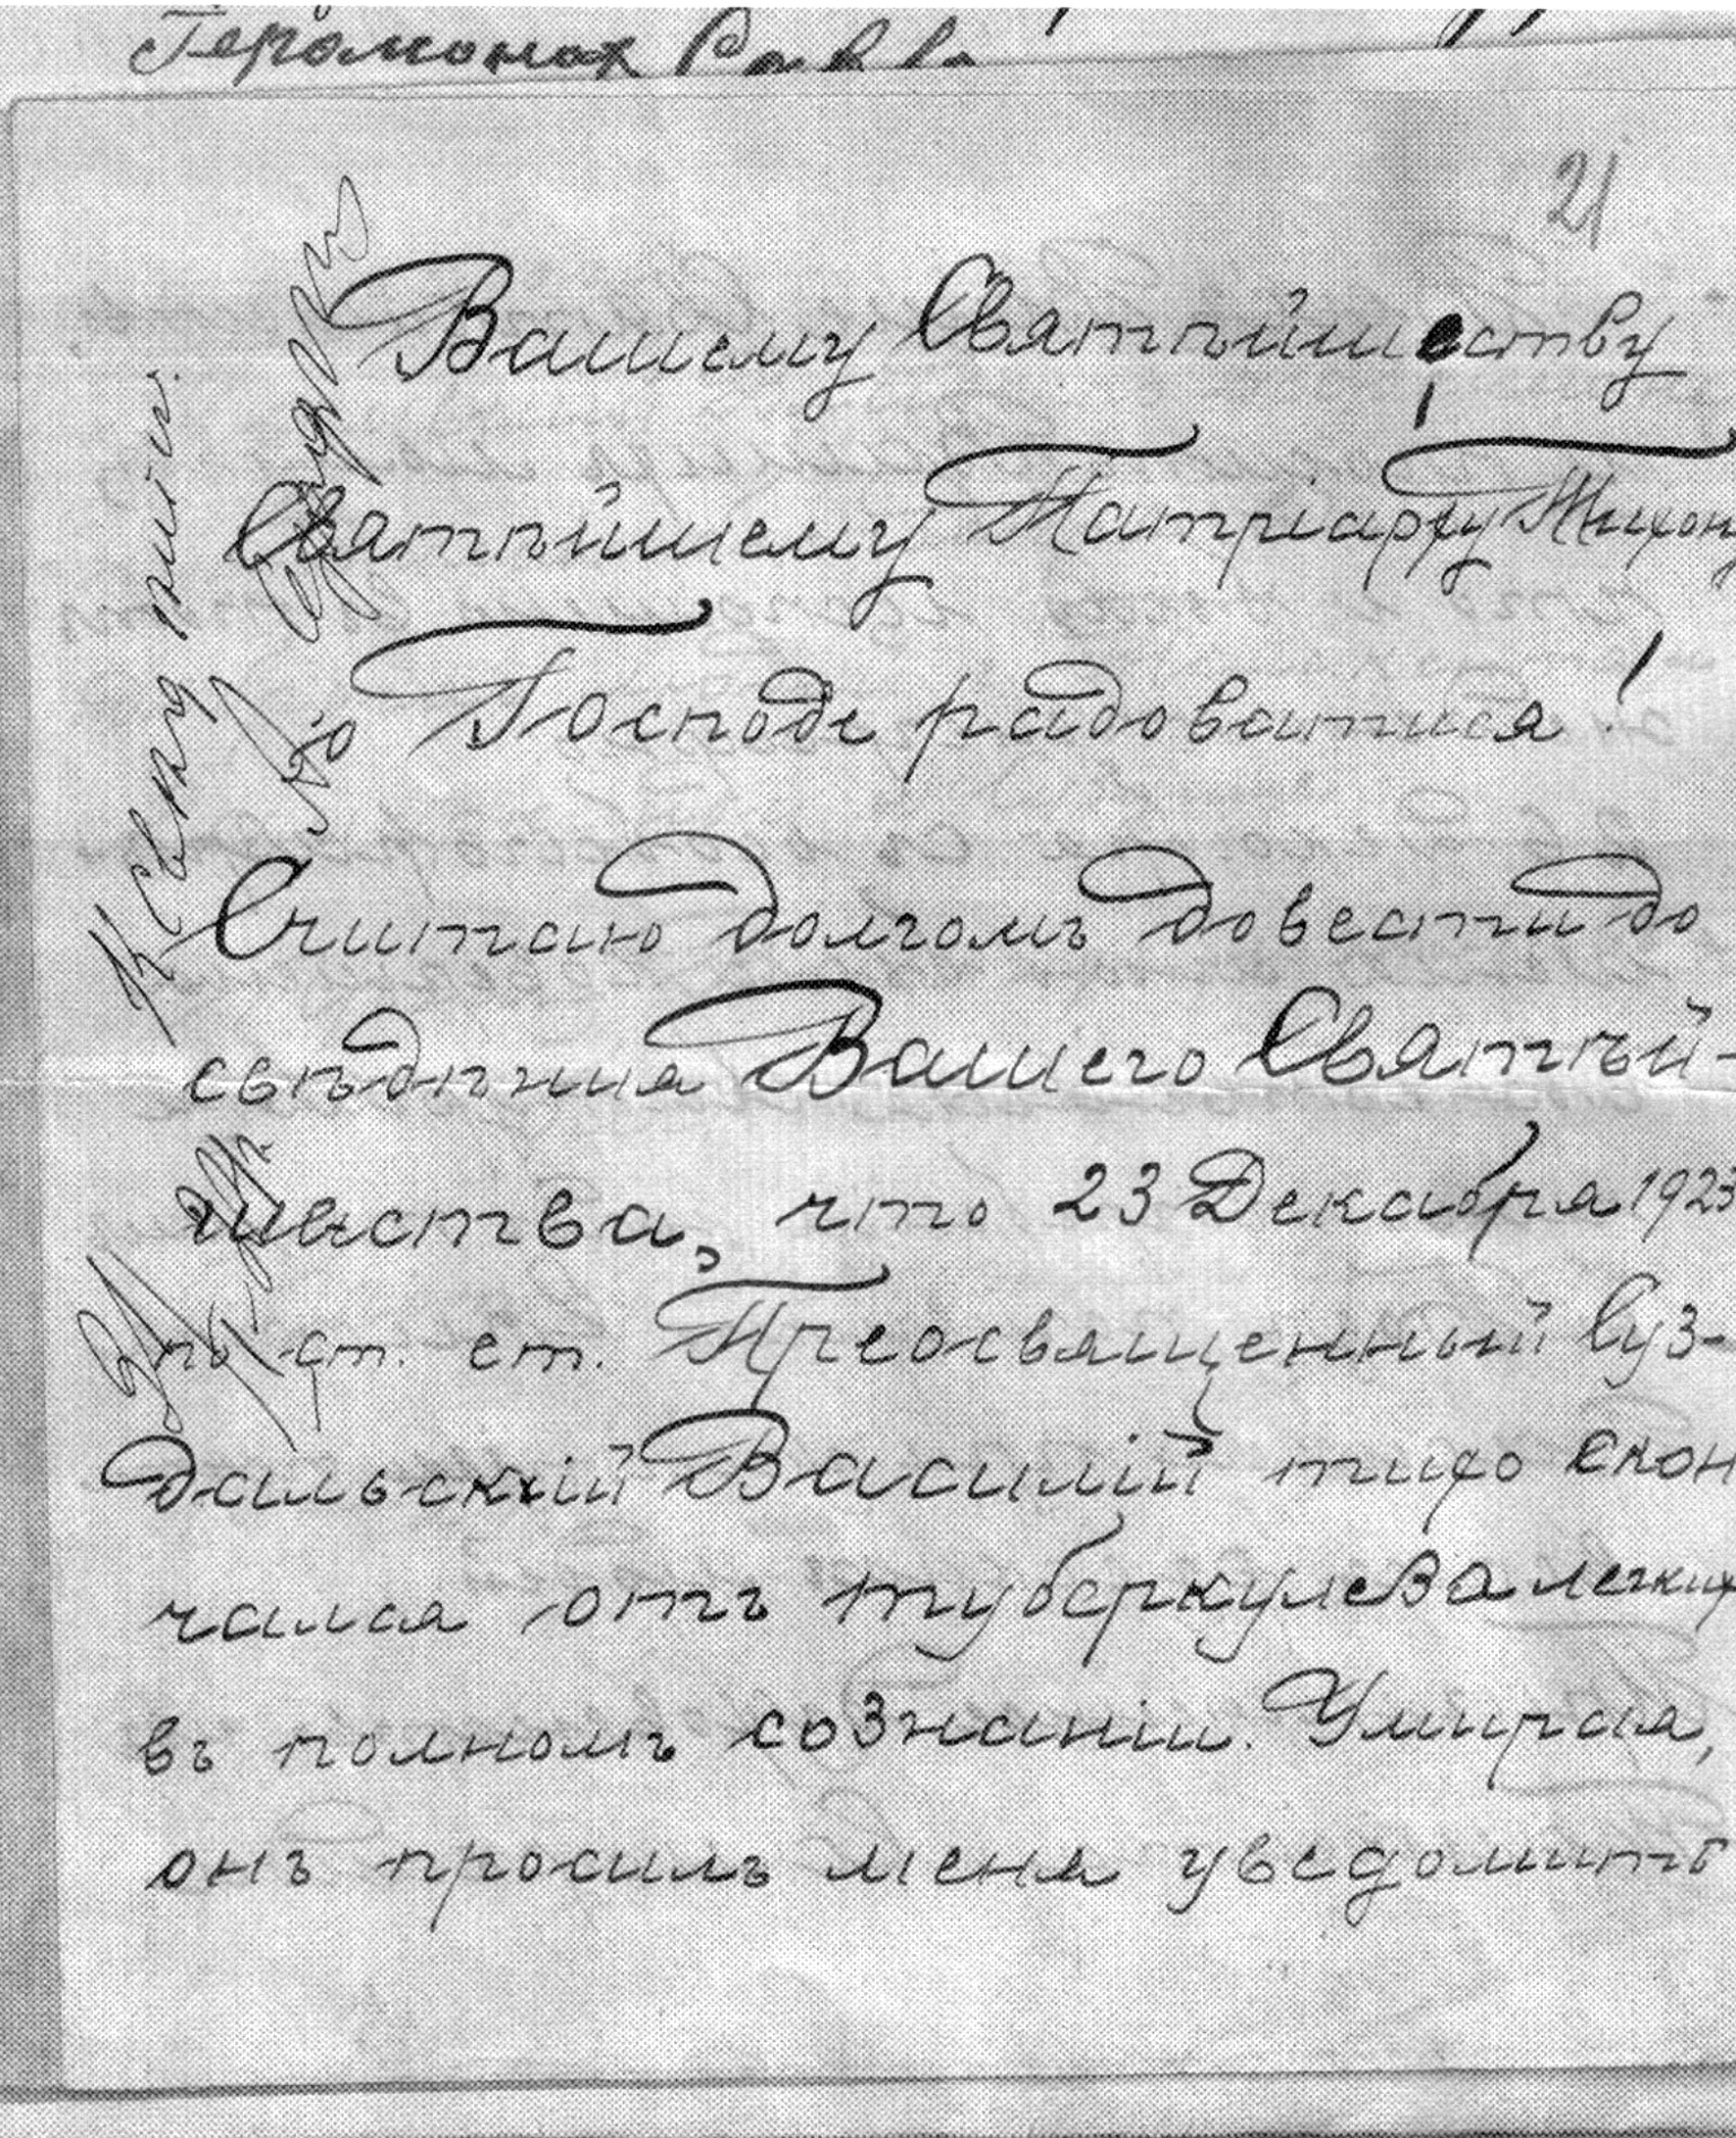 Іеромонах Савва
21
Вашему Святѣйшеству
Святѣйшему Патріарху Тихону
о Господе радоватися!
Считаю долгомъ довести до
свѣдѣния Вашего Святѣй-
шества, что 23 Декабря 1923
по ст. ст. Преосвященный Суз-
дальскій Василій тихо скон
чался отъ туберкулеза легких
въ полномъ сознаніи. Умирая,
онъ просилъ меня уведомить